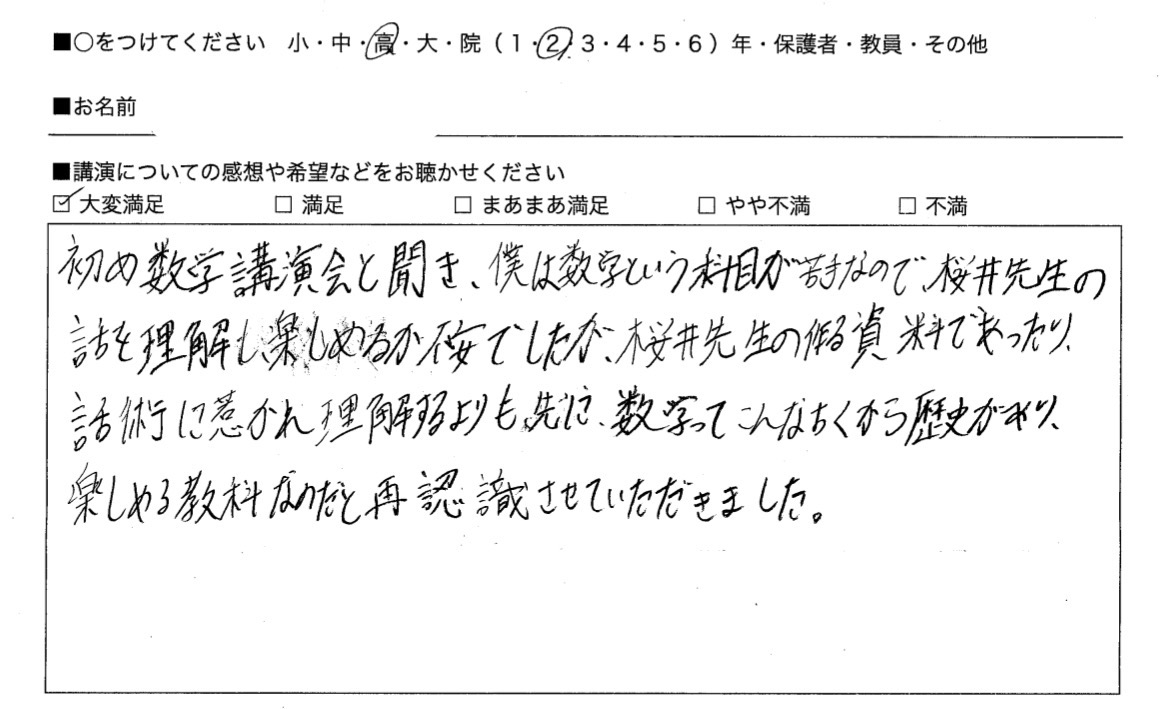 ■○をつけてください 小・中・高・大・院（1・2・3・4・5・6）年・保護者・教員・その他
■お名前
■講演についての感想や希望などをお聴かせください
☑ 大変満足 □ 満足 □ まあまあ満足 □ やや不満 □ 不満
初め数学講演会と聞き、僕は数学という科目が苦手なので、桜井先生の
話を理解し、楽しめるか不安でしたが、桜井先生の作る資料であったり、
話術に惹かれ理解するよりも先に、数学ってこんなちくから歴史があり、
楽しめる教科なのだと再認識させていただきました。